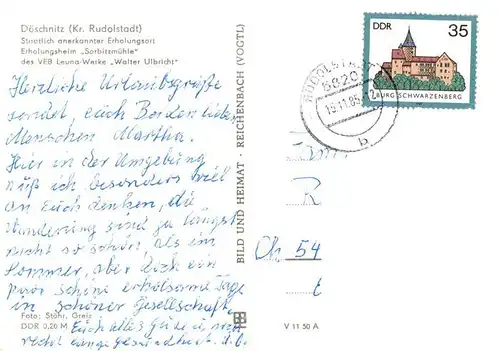 Döschnitz (Kr. Rudolstadt)
Staatlich anerkannter Erholungsort
Erholungsheim „Sorbitzmühle"
des VEB Leuna-Werke „Walter Ulbricht"
Herzliche Urlaubsgrüße
sendet, euch Beiden lieben
Menschen Martha.
Hier in der Umgebung
muß ich besonders viel
an Euch denken, die
Wanderung sind zu längst
nicht so schön als im
Sommer, aber doch ein
paar schöne erholsame Tage
in schöner Gesellschaft.
Foto: Stöhr, Greiz
DDR 0,20 M
Euch alles Gute u. noch
recht lange
BILD UND HEIMAT · REICHENBACH (VOGTL)
DDR
35
BURG SCHWARZENBERG
RUDOLSTADT
6820
15.11.85
b
Fam.
R
54
E
V 11 50 A